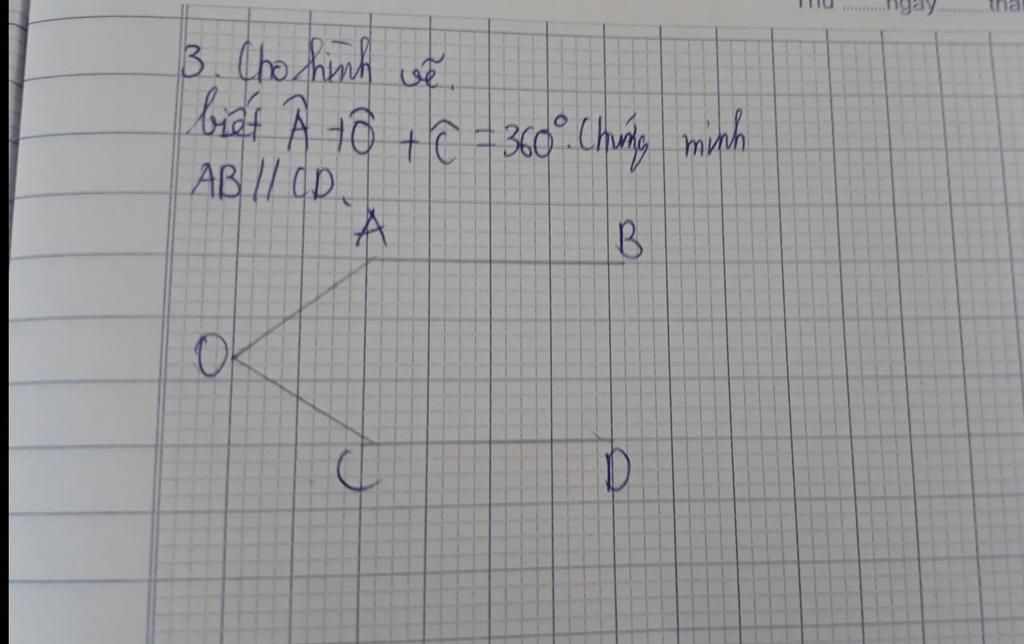 Thứ ........ngày..........thá
3. Cho hình vẽ.
biết Â + Ô + Ĉ = 360°. Chứng minh
AB // CD.
A B
O
C D